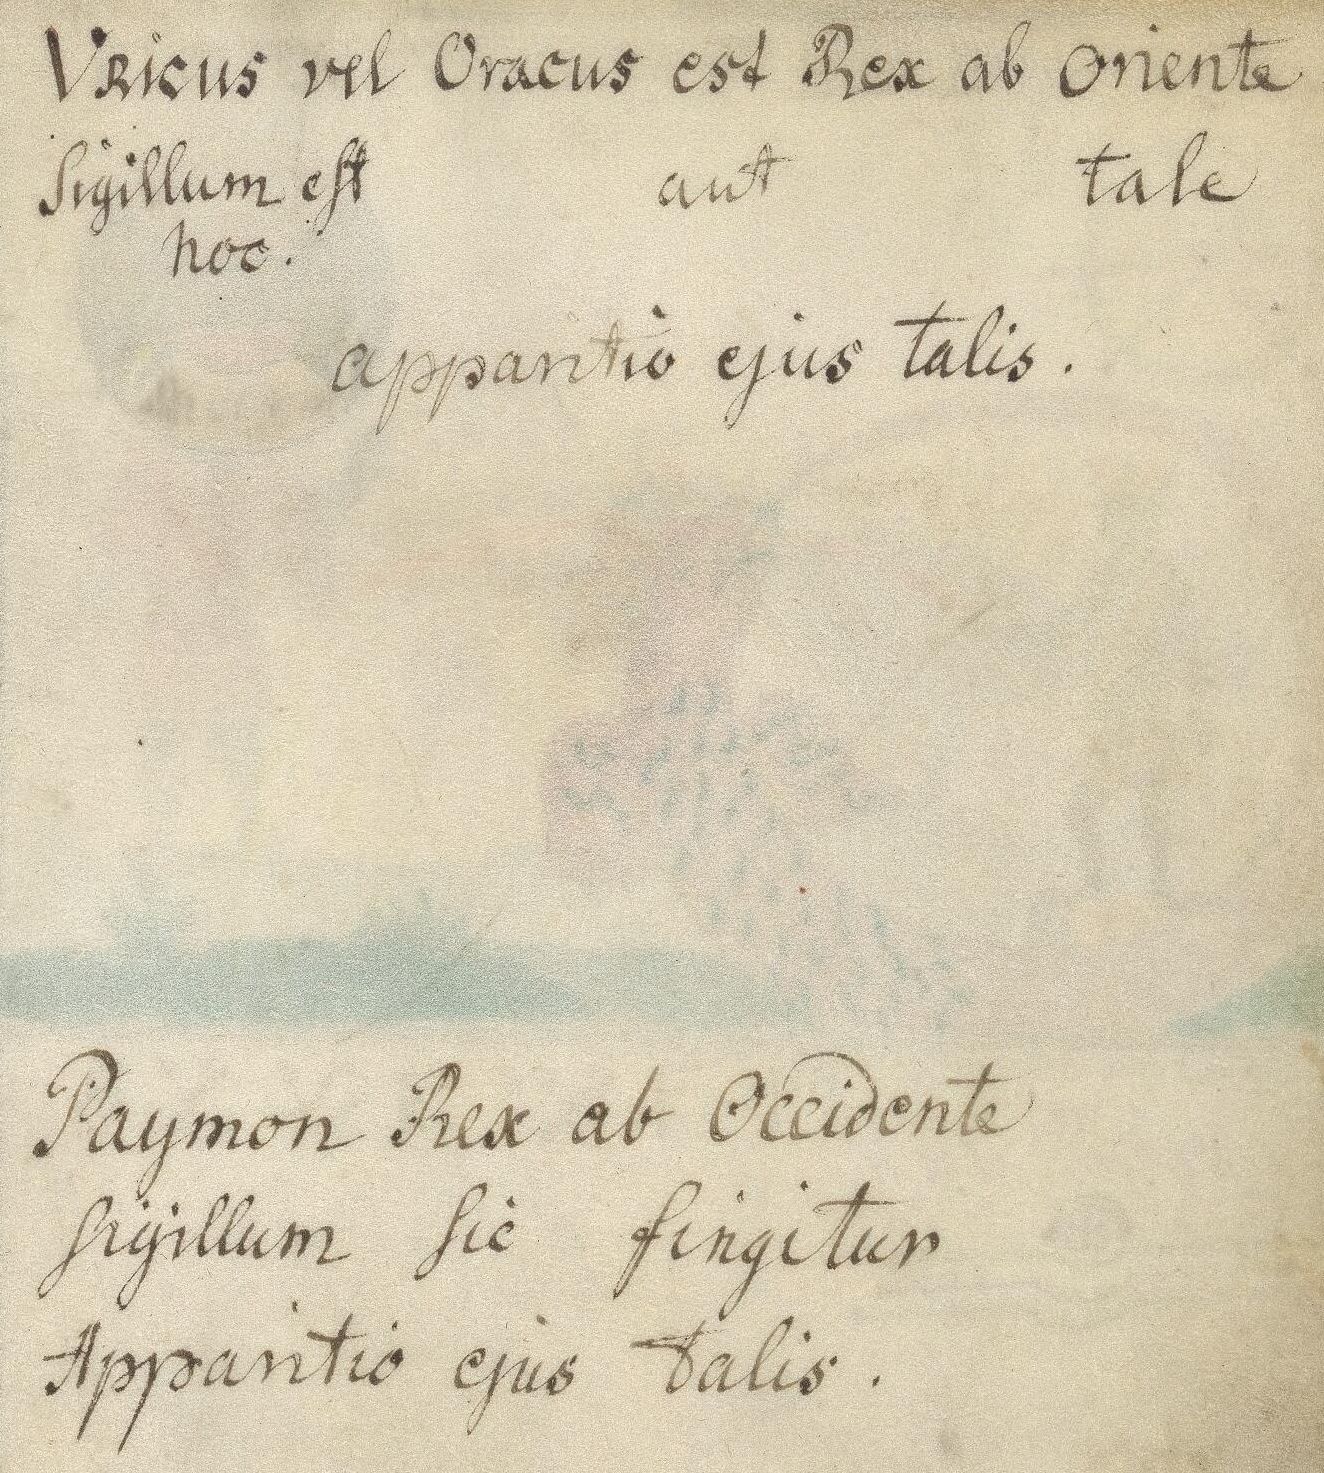 Vricus vel Oracus est Rex ab oriente
Sigillum est aut tale
hoc.
apparitio ejus talis.
Paymon Rex ab Occidente
sigillum sic fingitur
Apparitio ejus talis.